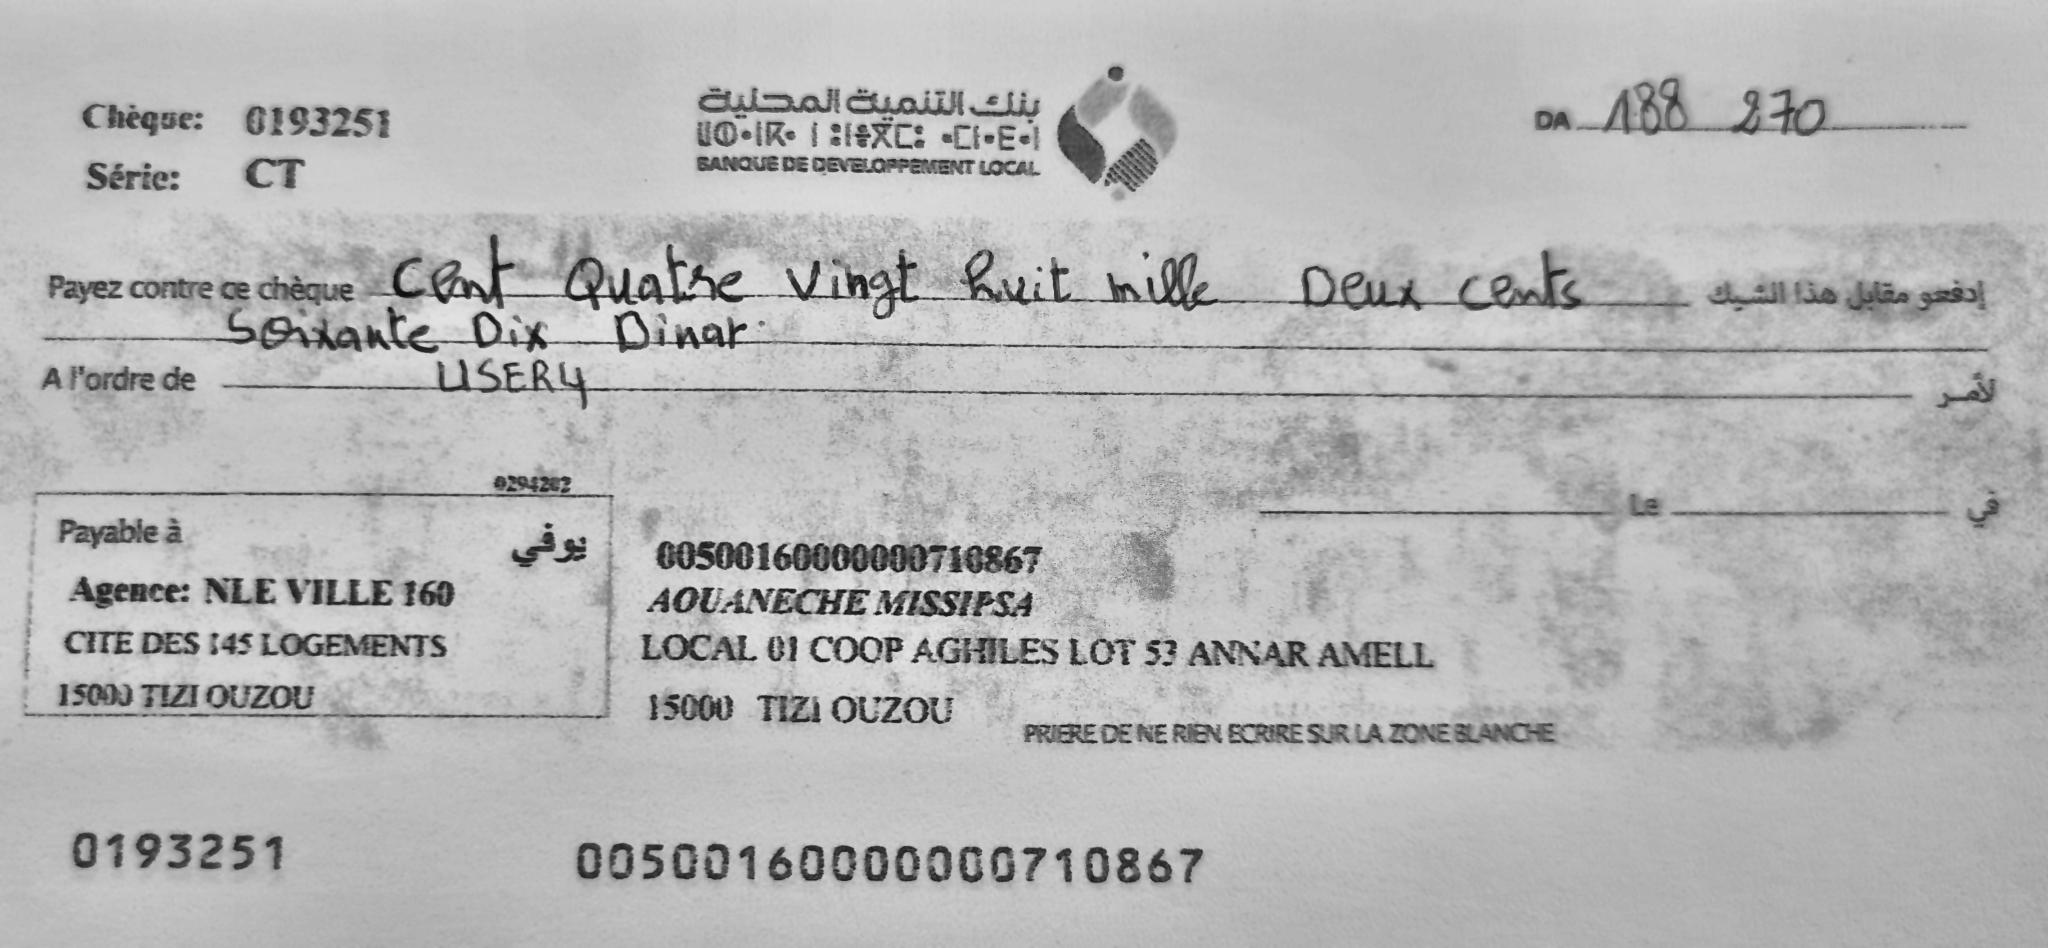 Chèque: 0193251
Série: CT
بنك التنمية المحلية
BANQUE DE DEVELOPPEMENT LOCAL
DA 188 270
Payez contre ce chèque Cent Quatre Vingt huit mille Deux cents إدفعو مقابل هذا الشيك
Soixante Dix Dinar
A l'ordre de USER4 لأمر
0294282
Le في
Payable à يوفي
Agence: NLE VILLE 160
CITE DES 145 LOGEMENTS
15000 TIZI OUZOU
00500160000000710867
AOUANECHE MISSIPSA
LOCAL 01 COOP AGHILES LOT 53 ANNAR AMELL
15000 TIZI OUZOU
PRIERE DE NE RIEN ECRIRE SUR LA ZONE BLANCHE
0193251 00500160000000710867